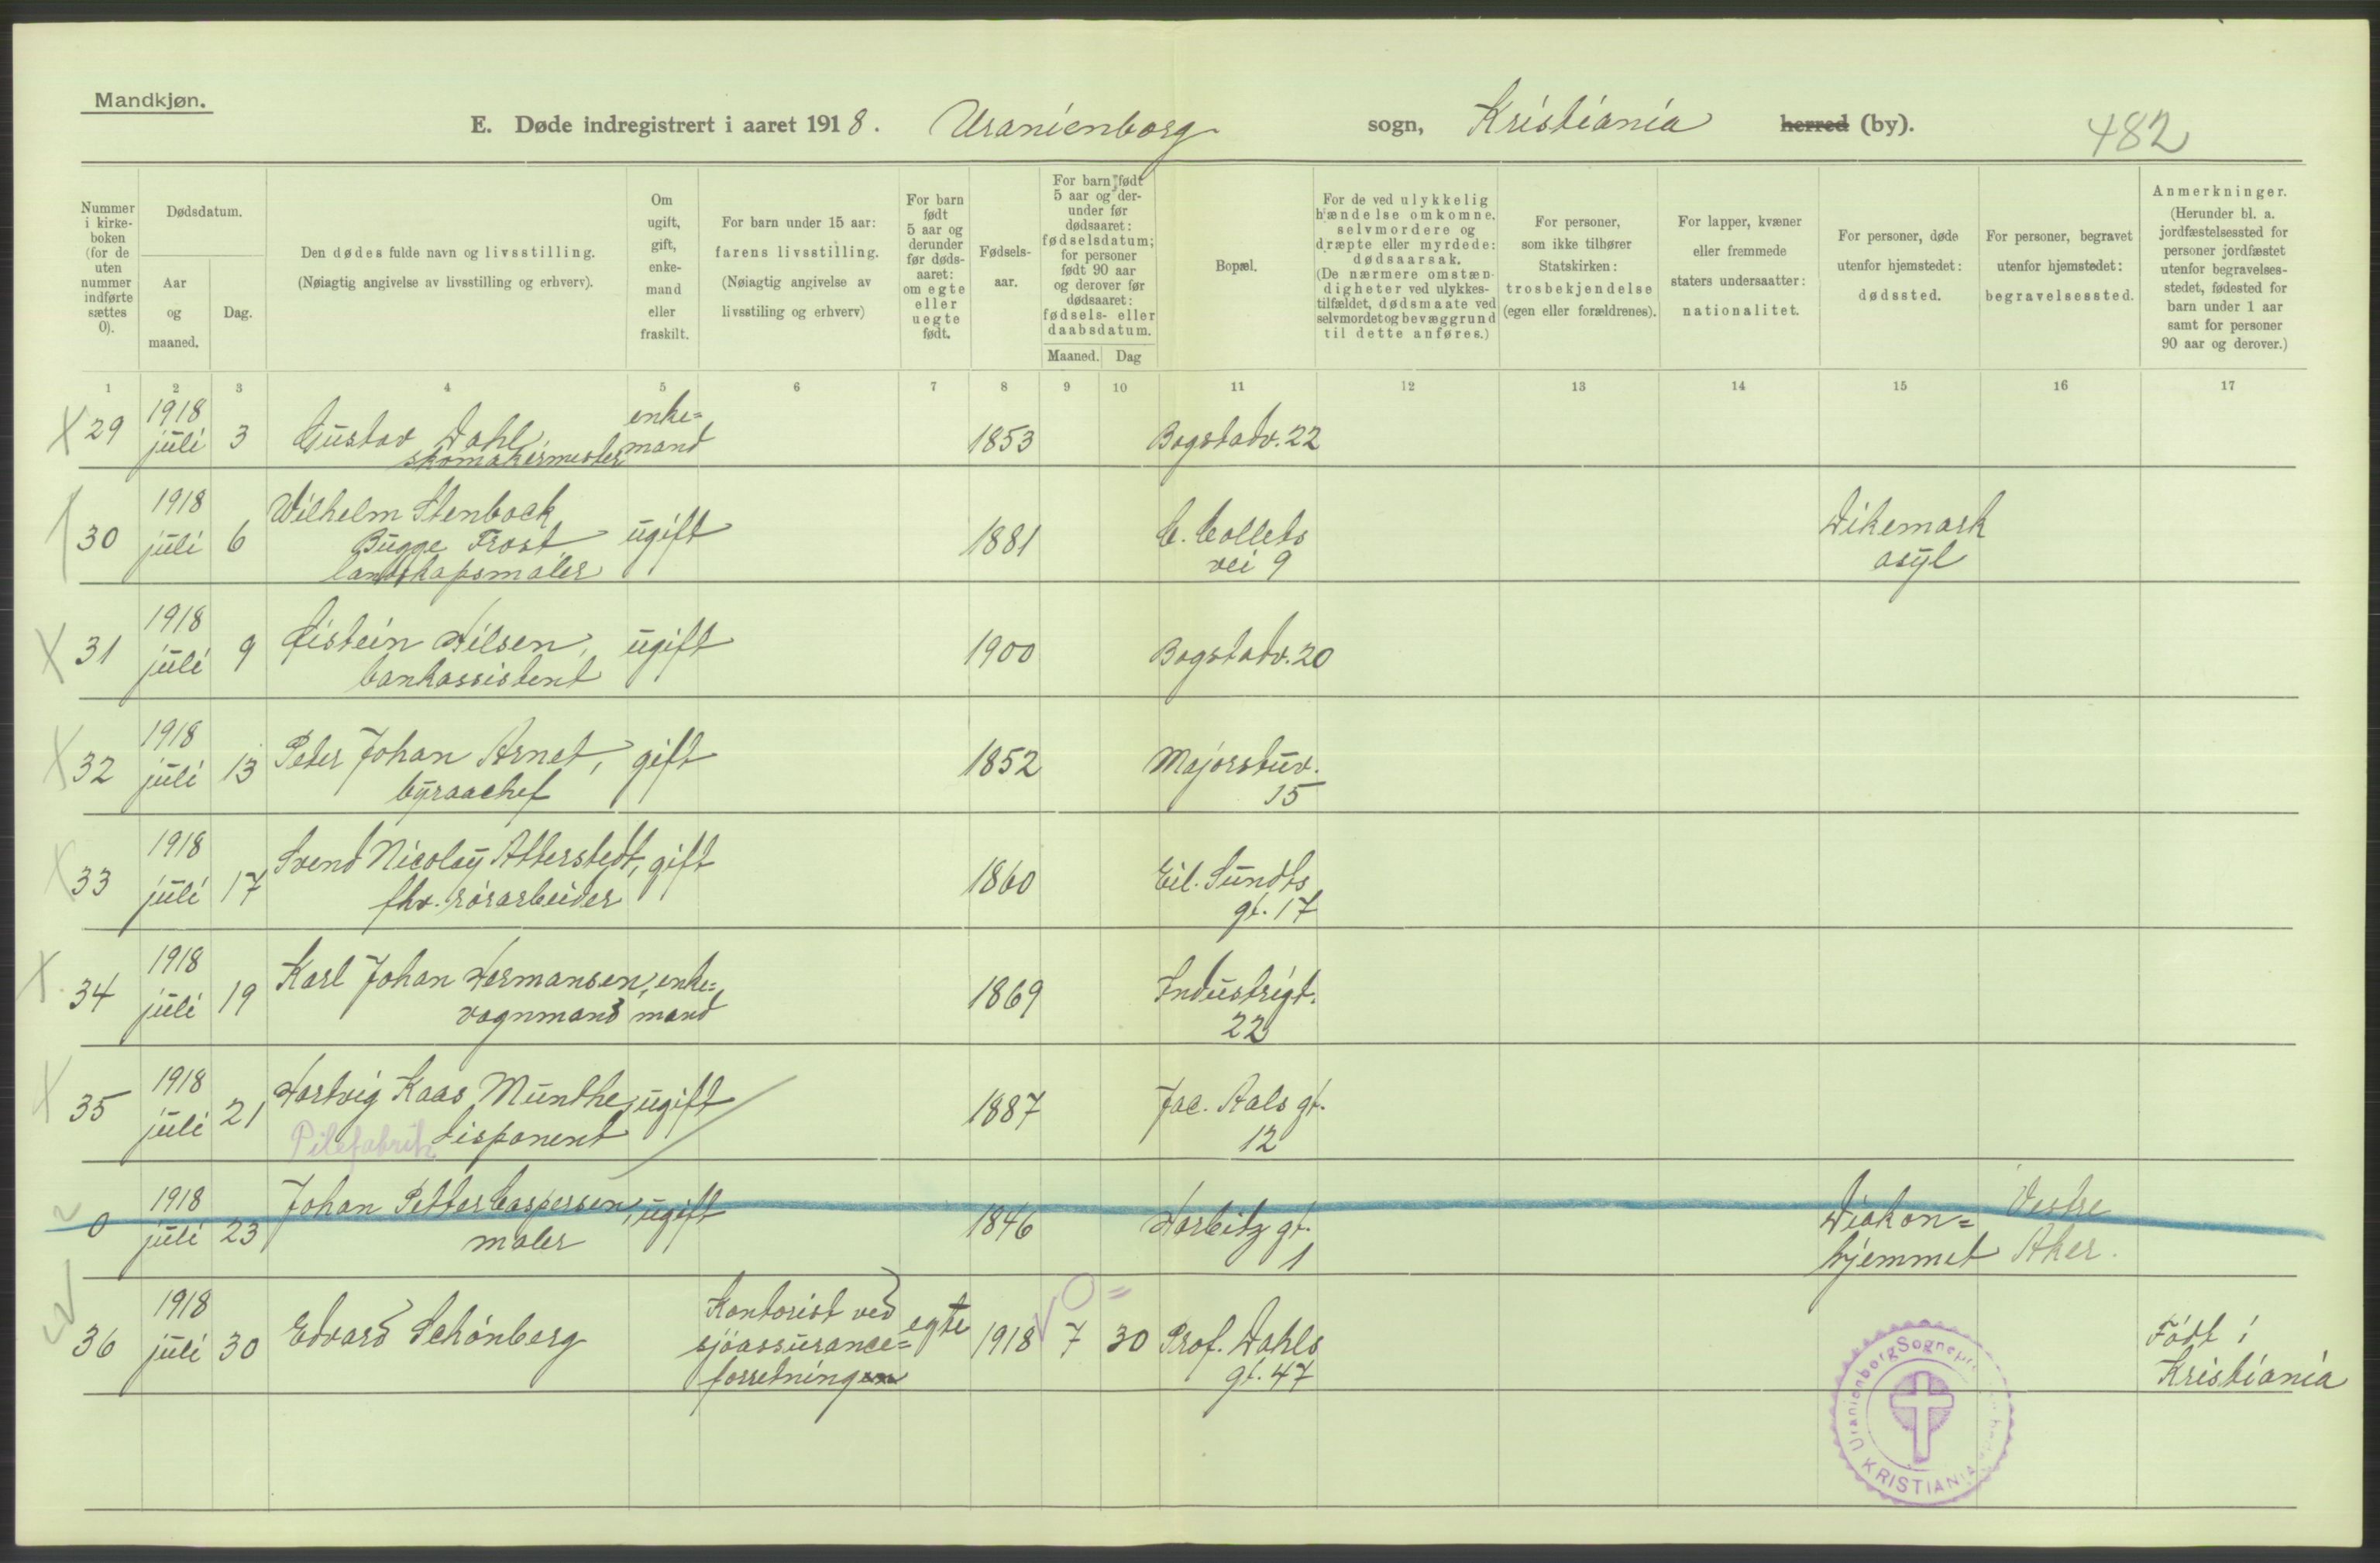 Mandkjøn.
E. Døde indregistrert i aaret 1918. Uranienborg sogn, Kristiania herred (by). 482
Nummer i kirke-boken (for de uten nummer indførte sættes 0).
Dødsdatum.
Aar og maaned.
Dag.
Den dødes fulde navn og livsstilling.
(Nøiagtig angivelse av livsstilling og erhverv).
Om ugift, gift, enke-mand eller fraskilt.
For barn under 15 aar:
farens livsstilling.
(Nøiagtig angivelse av
livsstiling og erhverv)
For barn født 5 aar og derunder før døds-aaret: om egte eller uegte født.
Fødsels-aar.
For barn født 5 aar og der-under før dødsaaret: fødselsdatum; for personer født 90 aar og derover før dødsaaret: fødsels- eller daabsdatum.
Maaned. Dag
Bopæl.
For de ved ulykkelig hændelse omkomne, selvmordere og dræpte eller myrdede: dødsaarsak. (De nærmere omstæn-digheter ved ulykkes-tilfældet, dødsmaate ved selvmordet og bevæggrund til dette anføres.)
For personer, som ikke tilhører Statskirken: trosbekjendelse (egen eller forældrenes).
For lapper, kvæner eller fremmede staters undersaatter: nationalitet.
For personer, døde utenfor hjemstedet: dødssted.
For personer, begravet utenfor hjemstedet: begravelsessted.
Anmerkninger.
(Herunder bl. a. jordfæstelsessted for personer jordfæstet utenfor begravelses-stedet, fødested for barn under 1 aar samt for personer 90 aar og derover.)
1 2 3 4 5 6 7 8 9 10 11 12 13 14 15 16 17
X 29 1918 juli 3 Gustav Dahl, skomakermester enke=mand 1853 Bogstadv. 22
30 1918 juli 6 Wilhelm Stenbock
Bugge Frost,
landskapsmaler ugift 1881 C. Collets
vei 9 Dikemark
asyl
X 31 1918 juli 9 Eistein Nilsen,
bankassistent ugift 1900 Bogstadv. 20
X 32 1918 juli 13 Peter Johan Arnet,
byraachef gift 1852 Majorstuv.
15
X 33 1918 juli 17 Svend Nicolay Atterstedt,
fhv. rörarbeider gift 1860 Eil. Sundts
gt. 17
X 34 1918 juli 19 Karl Johan Hermansen,
vognmand enke=
mand 1869 Industrigt.
22
X 35 1918 juli 21 Hartvig Kaas Munthe,
Pilefabrik disponent ugift 1887 Jac. Aals gt.
12
0 1918 juli 23 Johan Petter Caspersen,
maler ugift 1846 Harbitz gt.
1 Diakon=
hjemmet Vestre
Aker.
36 1918 juli 30 Edvard Schönberg Kontorist ved
sjöassurance=
forretning egte 1918 7 30 Prof. Dahls
gt. 47 Födt i
Kristiania
Uranienborg Sognepr
KRISTIANIA